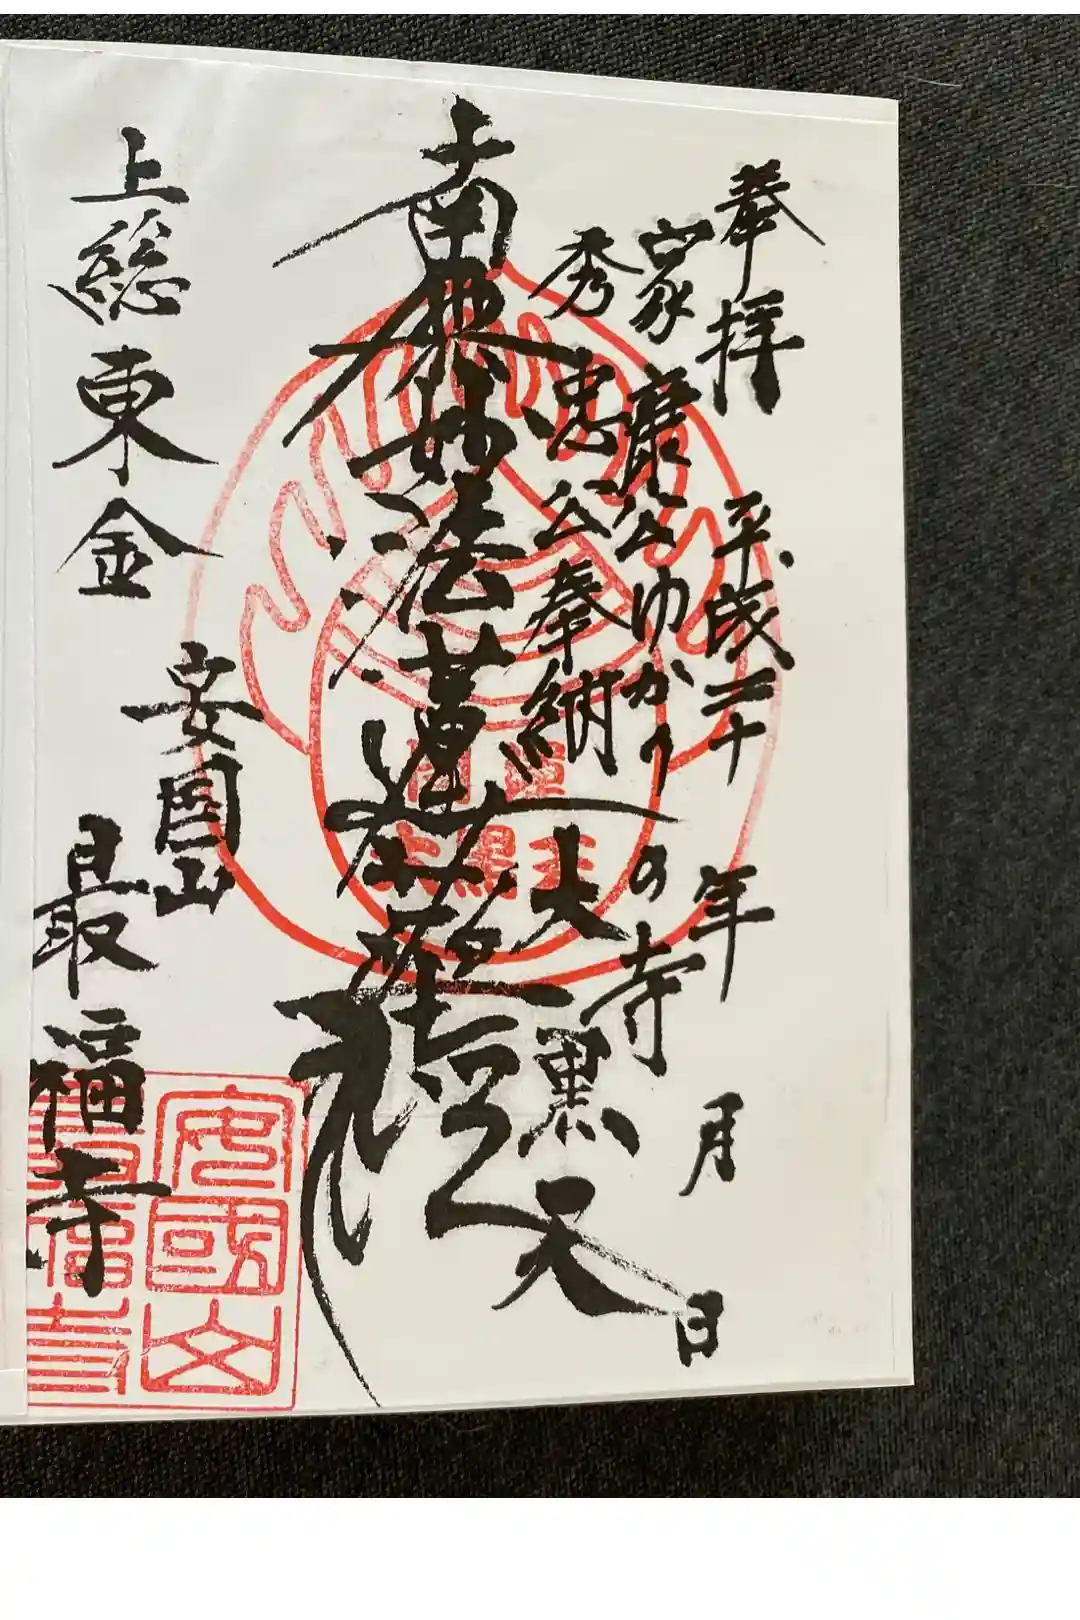 奉拝 平成三十 年 月 日
家康公ゆかりの寺
秀忠公奉納 大黒天
南無妙法蓮華経
上総東金
安国山
最福寺
安國山
最福寺